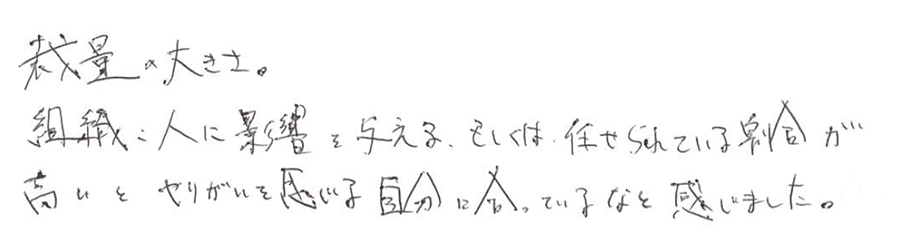 裁量の大きさ。
組織:人に影響を与える、もしくは、任せられている割合が
高いとやりがいを感じる自分に合っているなと感じました。